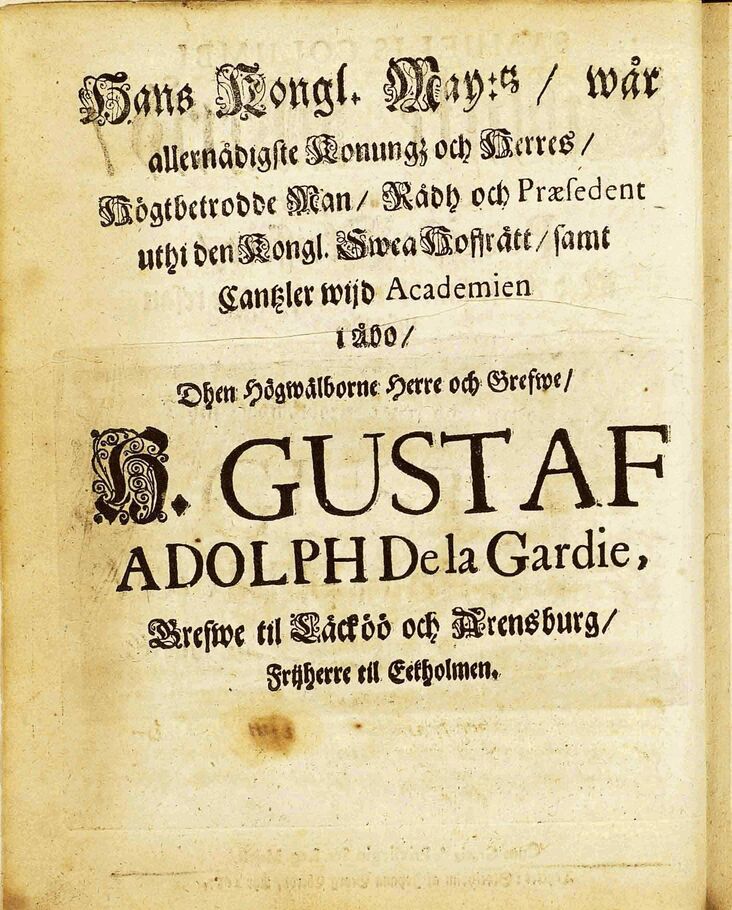 Hans Kongl. May:tz / wår
allernådigste Konungz och Herres /
Högtbetrodde Man / Rådh och Præsedent
uthi den Kongl. Swea Hoffrätt / samt
Cantzler wijd Academien
i Åbo /
Dhen Högwälborne Herre och Grefwe /
H. GUSTAF
ADOLPH De la Gardie,
Grefwe til Läcköö och Arensburg /
Frijherre til Eekholmen.